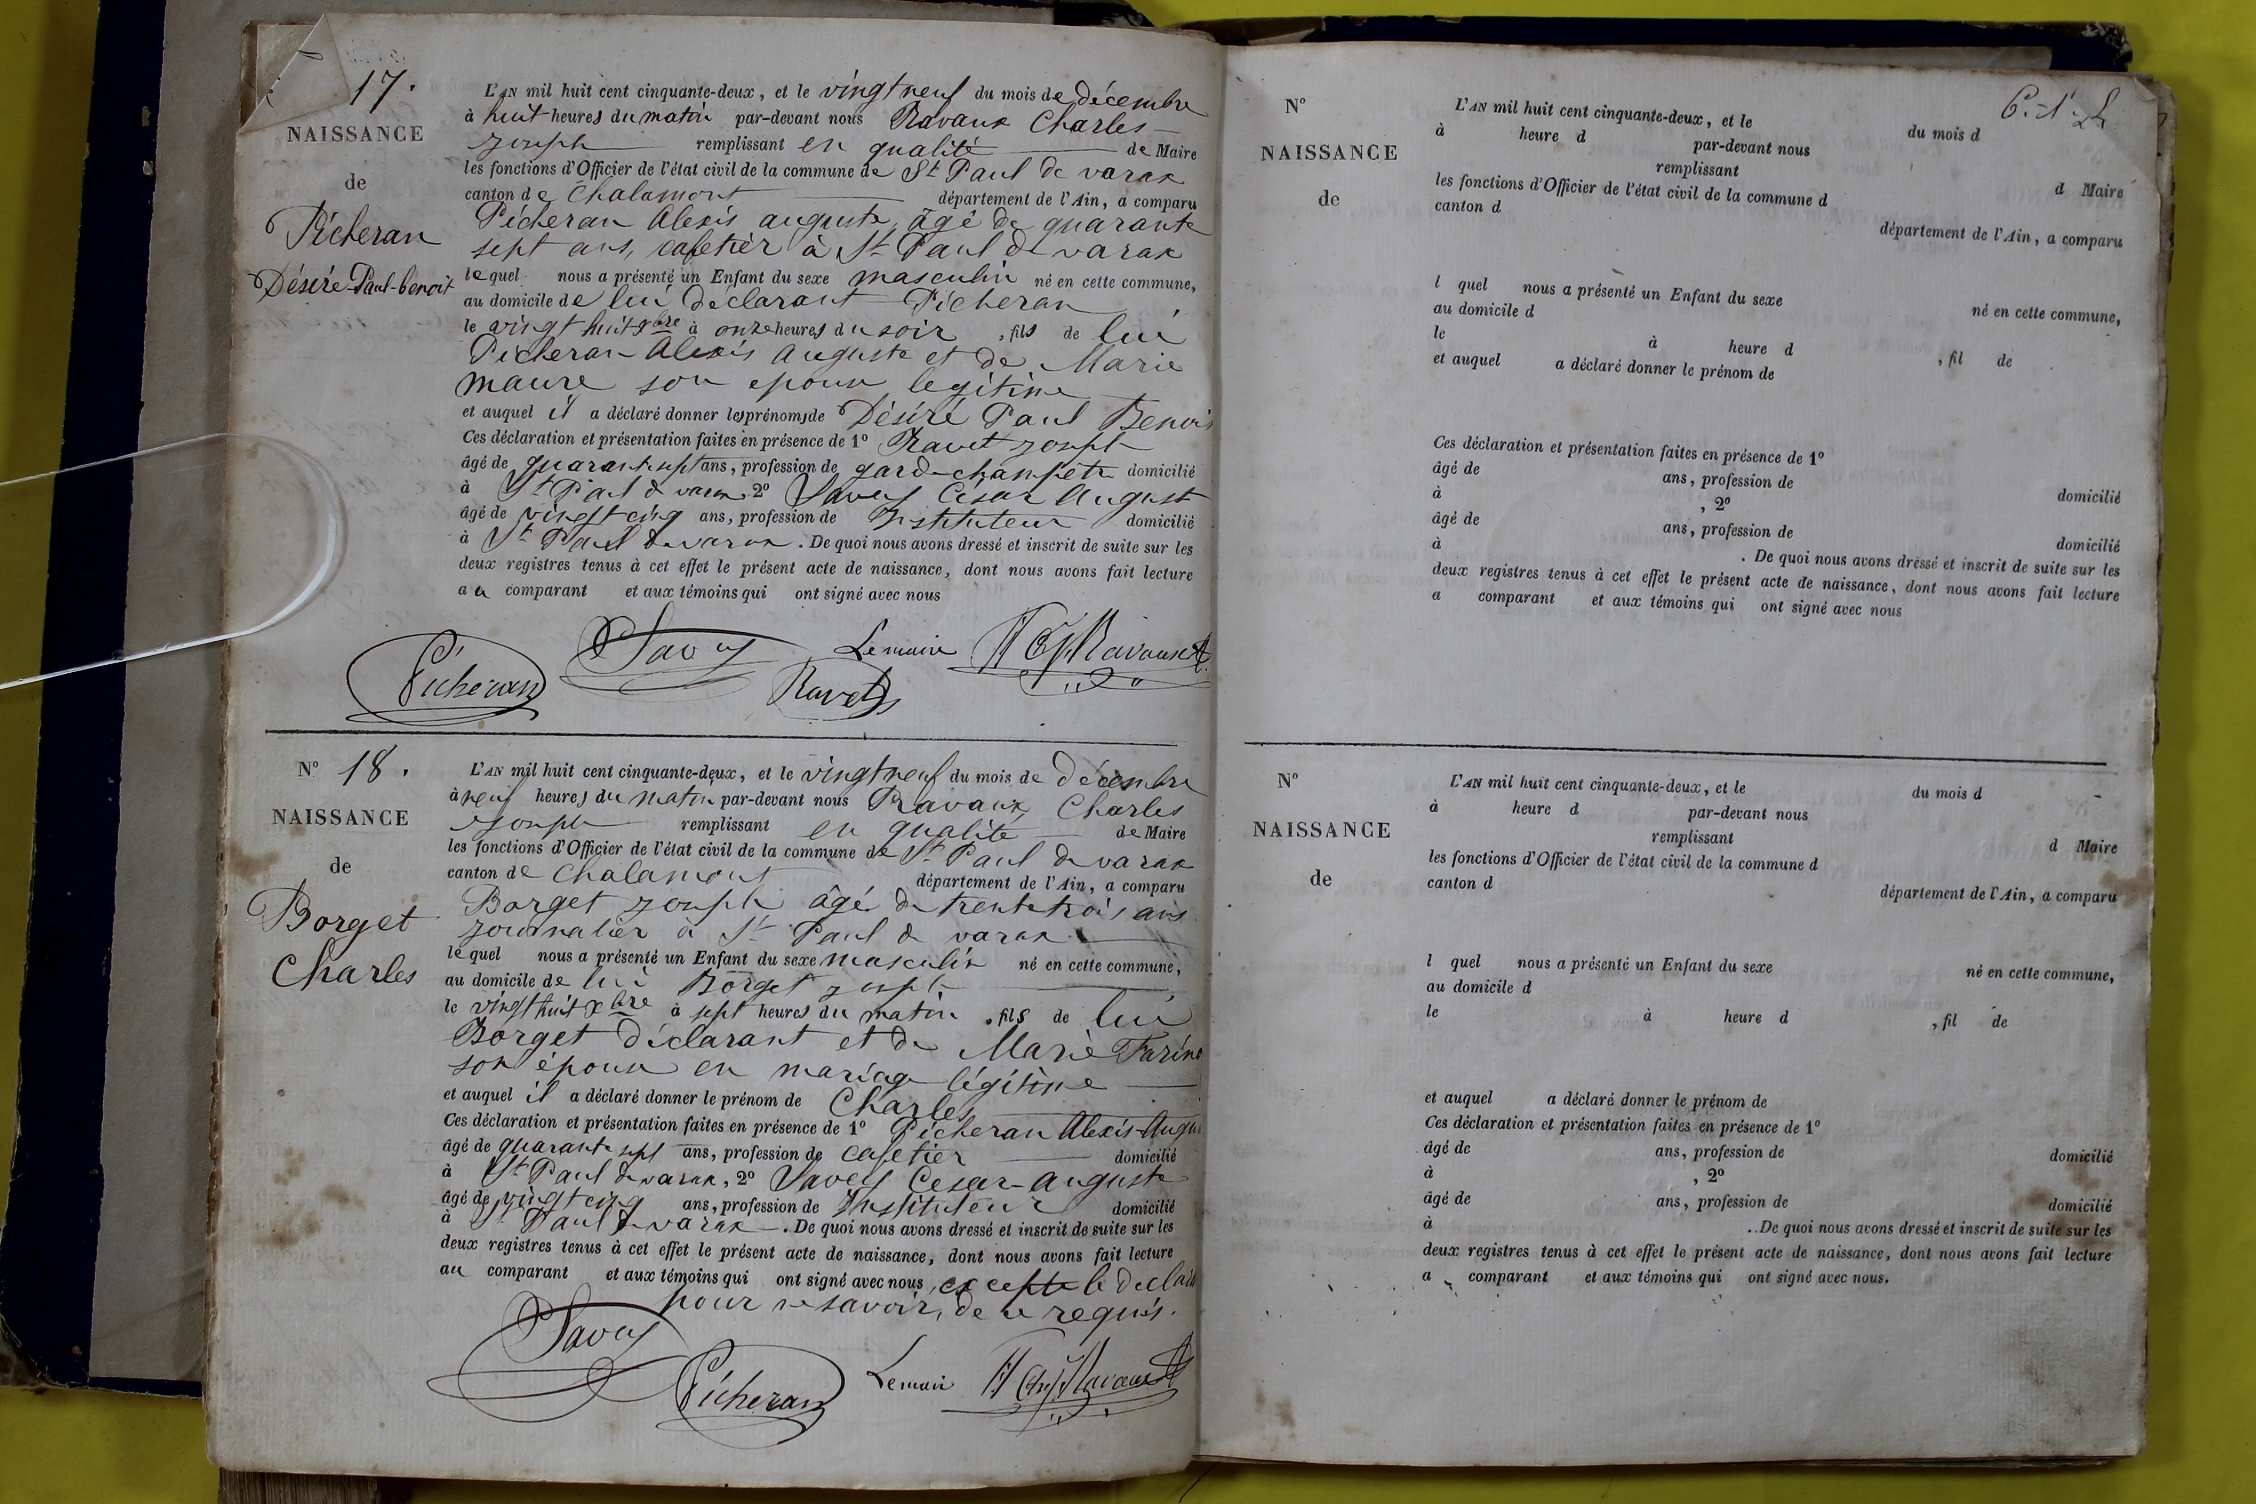 17.
NAISSANCE
de
Picheran
Désiré-Paul-benoit
L'AN mil huit cent cinquante-deux, et le vingt neuf du mois de décembre
à huit heures du matin par-devant nous Ravaux Charles
Joseph remplissant en qualité de Maire
les fonctions d'Officier de l'état civil de la commune de St Paul de varax
canton de Chalamont département de l'Ain, a comparu
Picheran Alexis auguste, âgé de quarante
sept ans, cafetier à St Paul de varax
lequel nous a présenté un Enfant du sexe masculin né en cette commune,
au domicile de lui declarant Picheran
le vingt huit xbre à onze heures du soir, fils de lui
Picheran Alexis Auguste et de Marie
maure son epouse legitime
et auquel il a déclaré donner les prénoms de Désiré Paul Benoit
Ces déclaration et présentation faites en présence de 1º Ravet Joseph
âgé de quarante sept ans, profession de gard-champêtre domicilié
à St Paul de varax 2º Savey César August
âgé de vingt cinq ans, profession de Instituteur domicilié
à St Paul de varax. De quoi nous avons dressé et inscrit de suite sur les
deux registres tenus à cet effet le présent acte de naissance, dont nous avons fait lecture
au comparant et aux témoins qui ont signé avec nous
Picheran Savey Ravet Le maire Ravaux
Nº 18.
NAISSANCE
de
Borget
Charles
L'AN mil huit cent cinquante-deux, et le vingt neuf du mois de décembre
à neuf heures du matin par-devant nous Ravaux Charles
Joseph remplissant en qualité de Maire
les fonctions d'Officier de l'état civil de la commune de St Paul de varax
canton de Chalamont département de l'Ain, a comparu
Borget Joseph âgé de trente trois ans
journalier à St Paul de varax
lequel nous a présenté un Enfant du sexe masculin né en cette commune,
au domicile de lui Borget Joseph
le vingt huit xbre à sept heures du matin, fils de lui
Borget déclarant et de Marie Farine
son épouse en mariage légitime
et auquel il a déclaré donner le prénom de Charles
Ces déclaration et présentation faites en présence de 1º Picheran Alexis-Augu
âgé de quarante sept ans, profession de cafetier domicilié
à St Paul de varax, 2º Savey Cesar-auguste
âgé de vingt cinq ans, profession de Instituteur domicilié
à St Paul de varax. De quoi nous avons dressé et inscrit de suite sur les
deux registres tenus à cet effet le présent acte de naissance, dont nous avons fait lecture
au comparant et aux témoins qui ont signé avec nous excepte le declar
pour ne savoir, de ce requis.
Savey Picheran Le maire Ravaux
Nº
NAISSANCE
de
L'AN mil huit cent cinquante-deux, et le du mois d
à heure d par-devant nous
remplissant d Maire
les fonctions d'Officier de l'état civil de la commune d
canton d département de l'Ain, a comparu
l quel nous a présenté un Enfant du sexe né en cette commune,
au domicile d
le à heure d , fil de
et auquel a déclaré donner le prénom de
Ces déclaration et présentation faites en présence de 1º
âgé de ans, profession de domicilié
à , 2º
âgé de ans, profession de domicilié
à . De quoi nous avons dressé et inscrit de suite sur les
deux registres tenus à cet effet le présent acte de naissance, dont nous avons fait lecture
a comparant et aux témoins qui ont signé avec nous
Nº
NAISSANCE
de
L'AN mil huit cent cinquante-deux, et le du mois d
à heure d par-devant nous
remplissant d Maire
les fonctions d'Officier de l'état civil de la commune d
canton d département de l'Ain, a comparu
l quel nous a présenté un Enfant du sexe né en cette commune,
au domicile d
le à heure d , fil de
et auquel a déclaré donner le prénom de
Ces déclaration et présentation faites en présence de 1º
âgé de ans, profession de domicilié
à , 2º
âgé de ans, profession de domicilié
à . De quoi nous avons dressé et inscrit de suite sur les
deux registres tenus à cet effet le présent acte de naissance, dont nous avons fait lecture
a comparant et aux témoins qui ont signé avec nous.